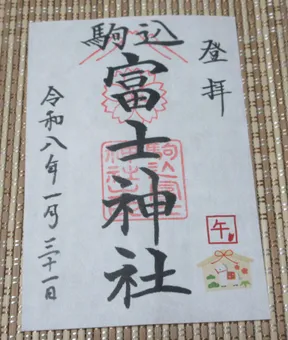 登拝
駒込
富士神社
令和八年一月三十一日
午